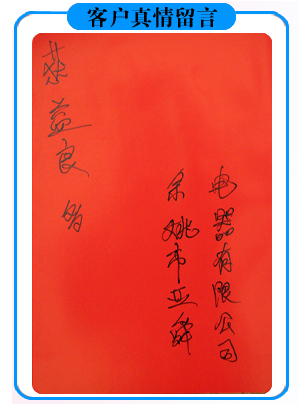 客户真情留言
益良
余姚市
电器有限公司